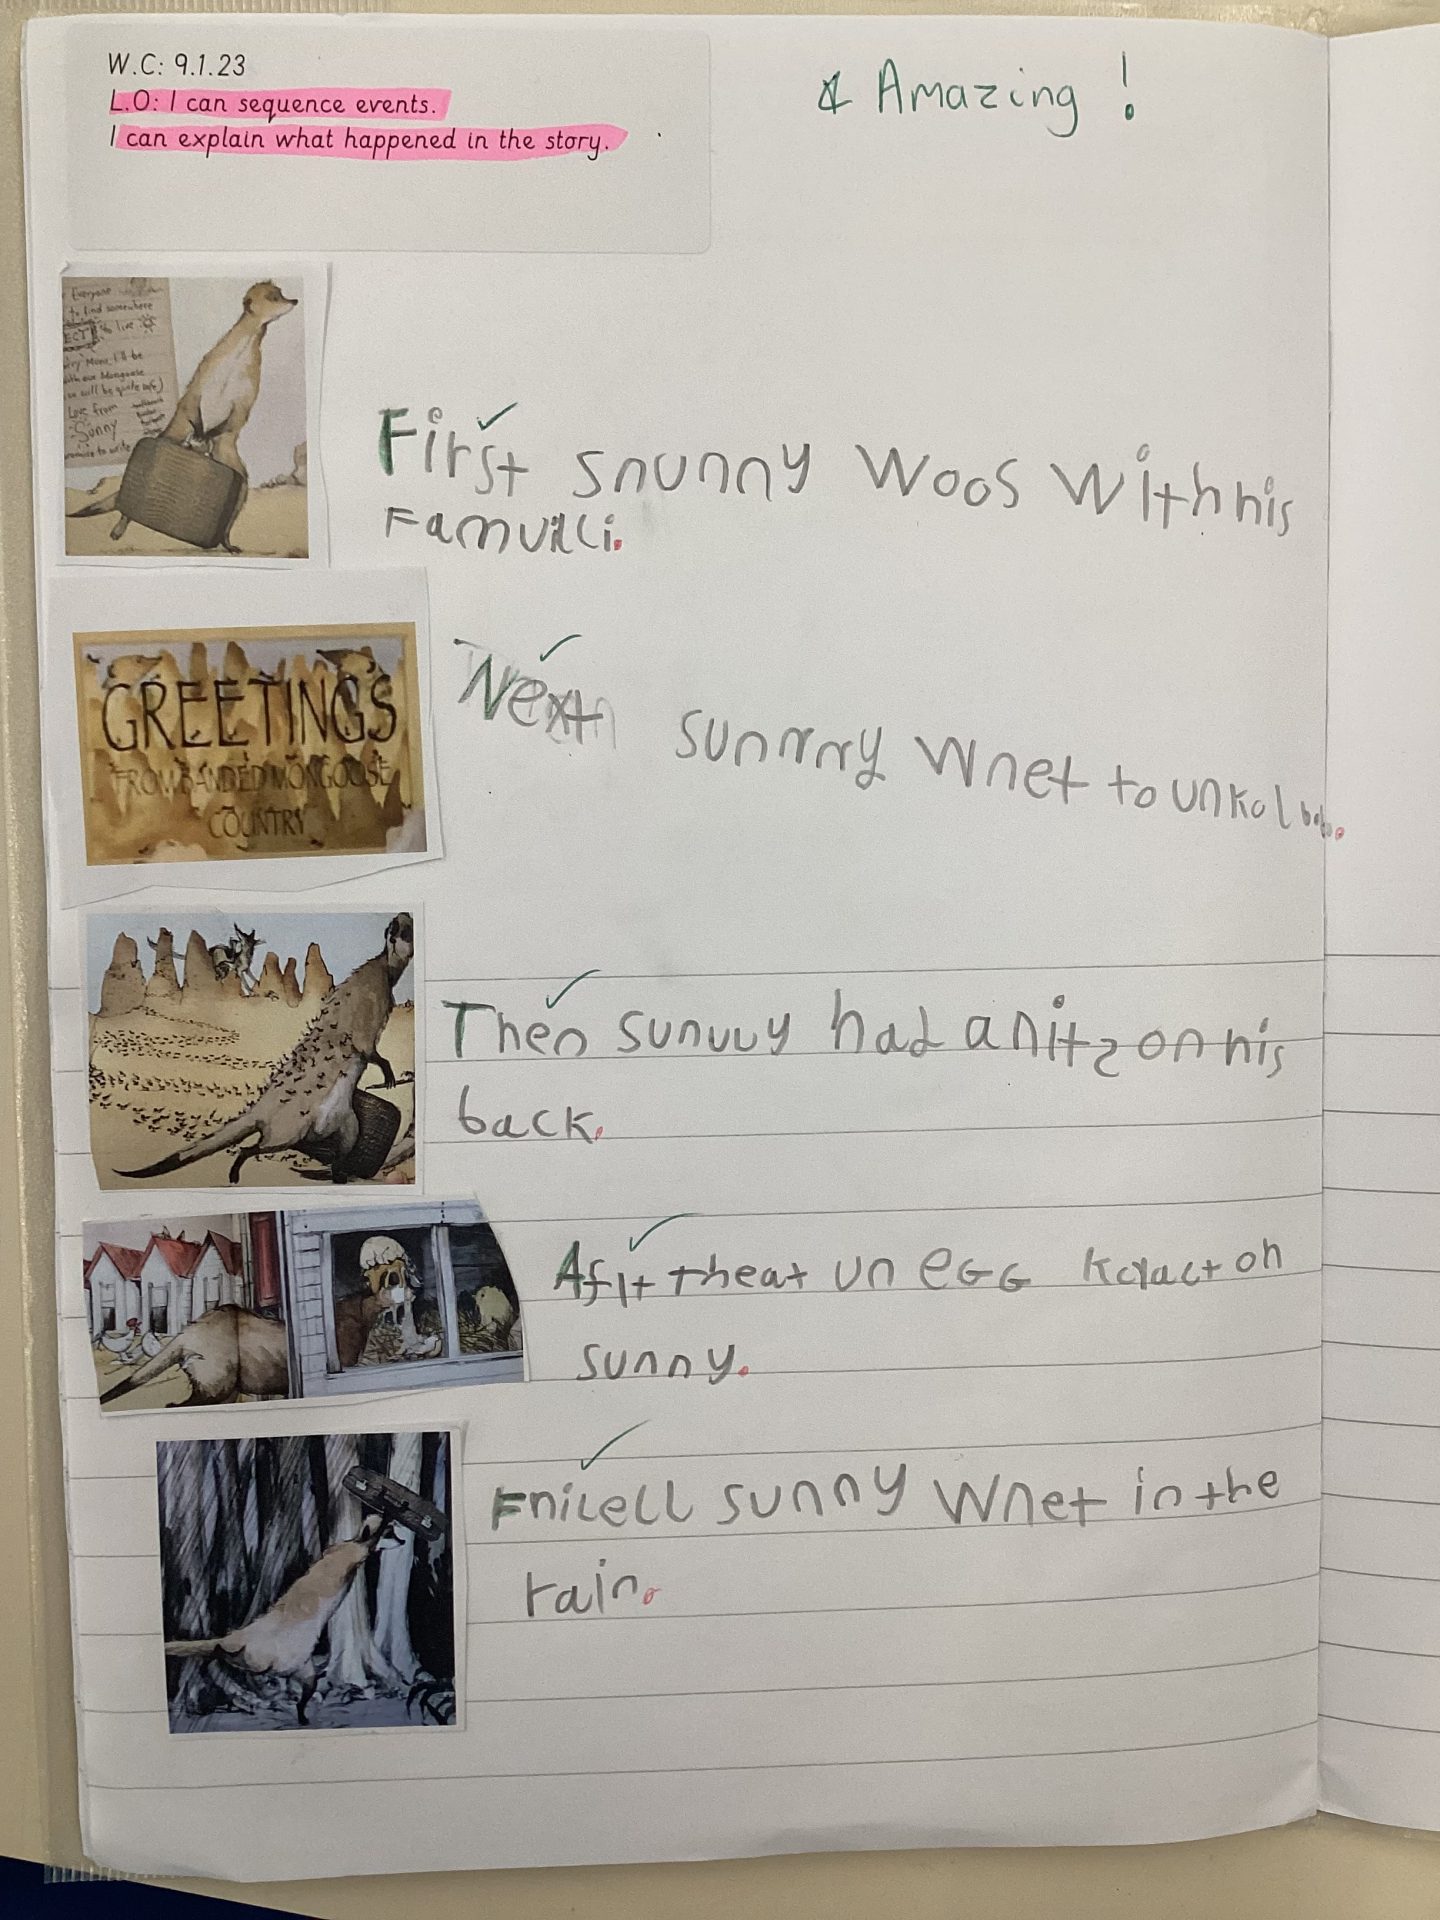 W.C: 9.1.23
L.O: I can sequence events.
I can explain what happened in the story.
Amazing!
Everyone
to find somewhere
ECT to live
Mum, I'll be
with our Mongoose
will be quite safe)
Love from
Sunny
promise to write
First snunny woos with his
Famulli.
GREETINGS
FROM BANDED MONGOOSE
COUNTRY
Next sunnny Wnet to unkol bob.
Then sunuuy had a nitz on his
back.
Afit theat un eGG kclact on
sunny.
Fnilell sunny Wnet in the
rain.